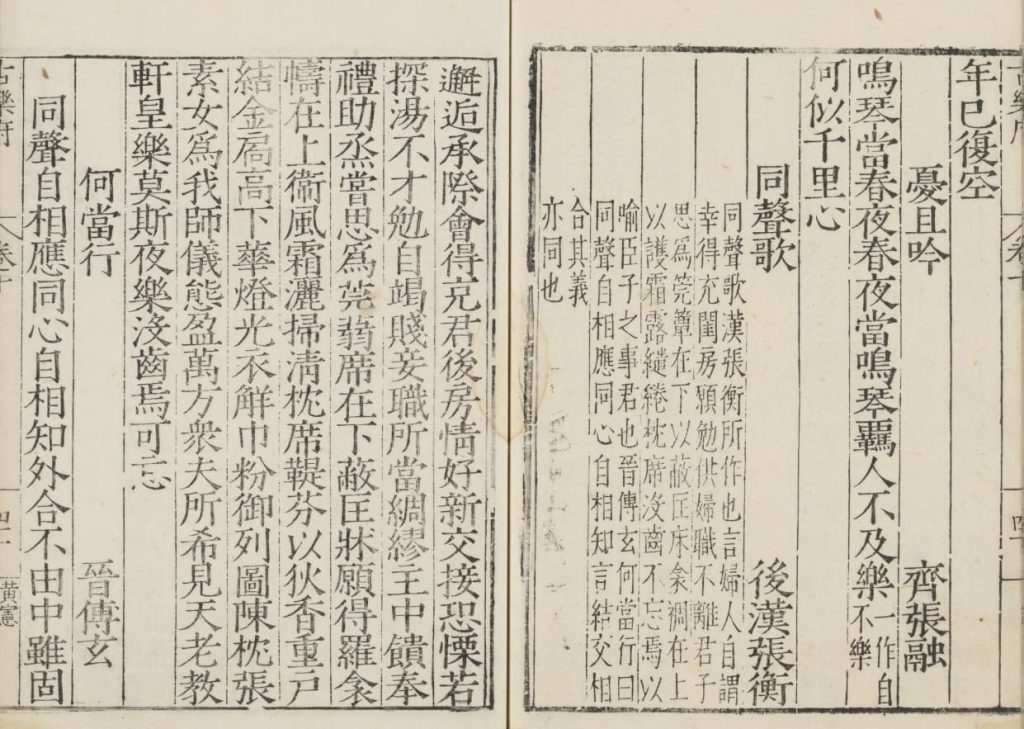 年已復空
憂且吟 齊張融
鳴琴當春夜春夜當鳴琴羈人不及樂一作自不樂
何似千里心
同聲歌 後漢張衡
同聲歌漢張衡所作也言婦人自謂
幸得充閨房願勉供婦職不離君子
思爲莞簟在下以蔽匡床衾裯在上
以護霜露繾綣枕席没齒不忘焉以
喻臣子之事君也晉傅玄何當行曰
同聲自相應同心自相知言結交相
合其義
亦同也
邂逅承際會得充君後房情好新交接恐慄若
探湯不才勉自竭賤妾職所當綢繆主中饋奉
禮助烝嘗思爲莞蒻席在下蔽匡牀願得羅衾
幬在上衞風霜灑掃清枕席鞮芬以狄香重戸
結金扃高下華燈光衣解巾粉御列圖陳枕張
素女爲我師儀態盈萬方衆夫所希見天老教
軒皇樂莫斯夜樂没齒焉可忘
何當行 晉傅玄
同聲自相應同心自相知外合不由中雖固
古樂府 卷十